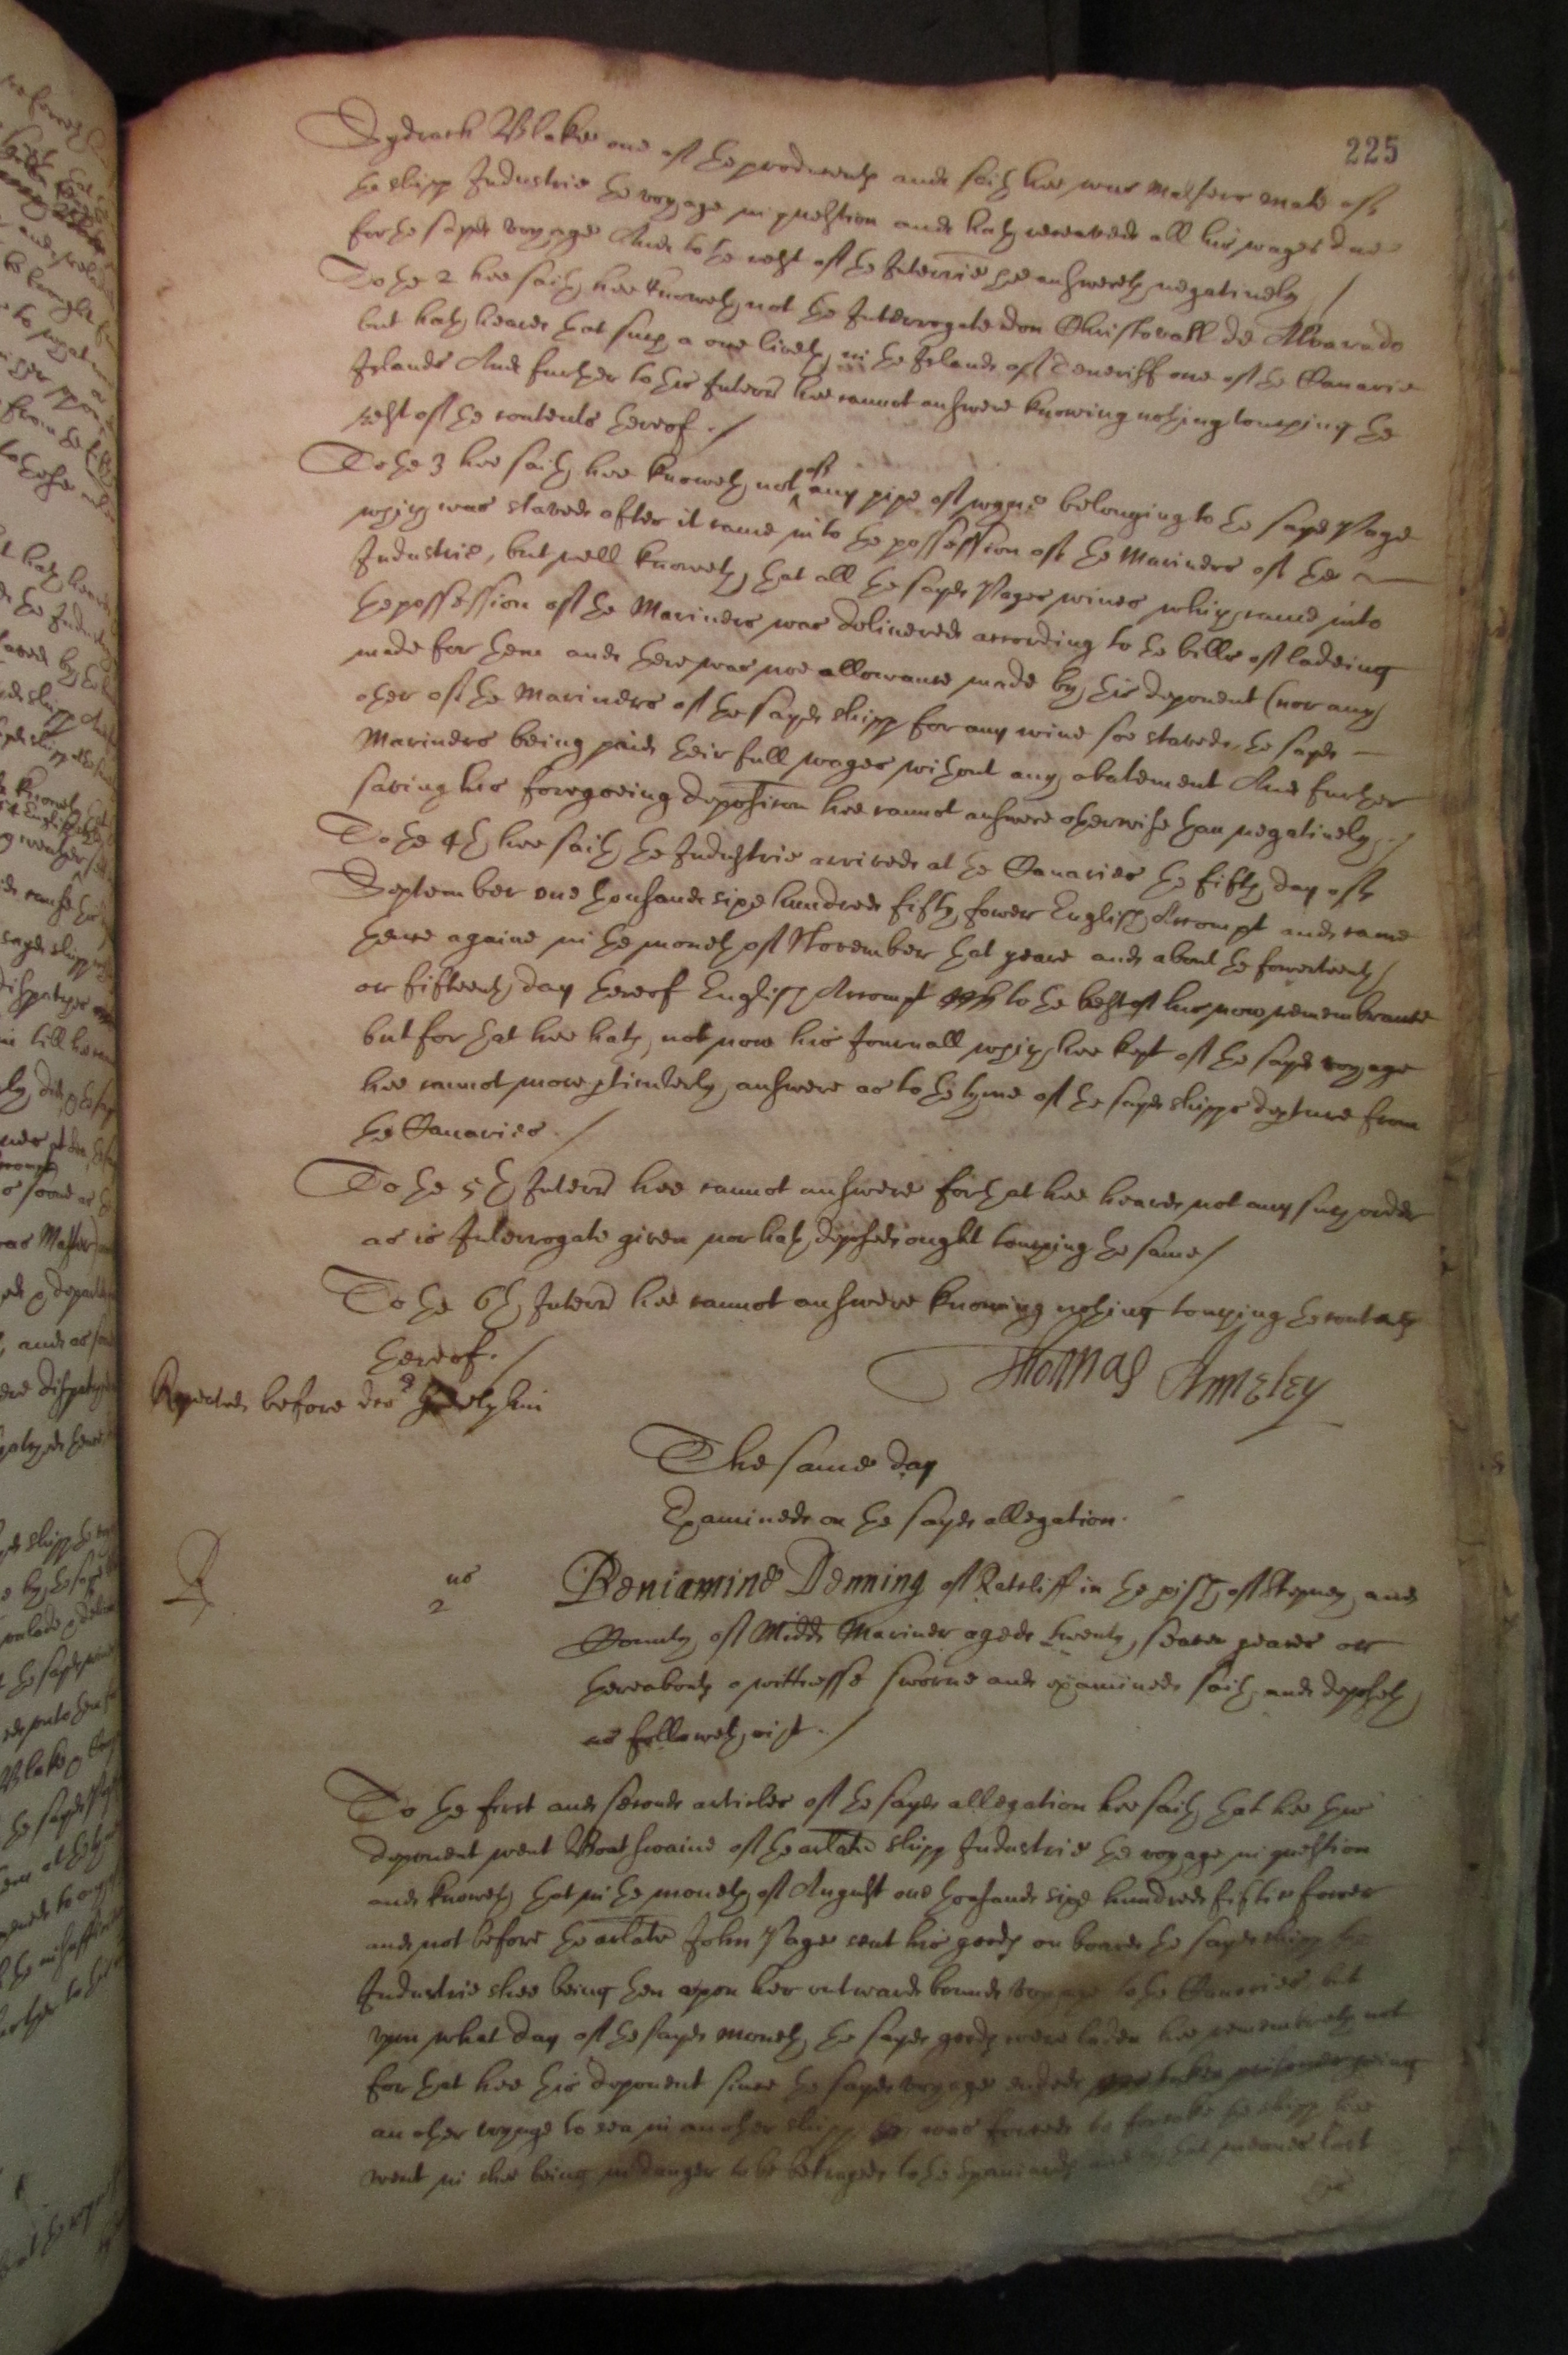 225
Sydrach Blake one of the producents and saith hee was Masters mate of
the shipp Industrie the voyage in question and hath received all his wages due
for the sayd voyage And to the rest of the Interrie hee answereth negatively /
To the 2 hee saith hee knoweth not the Interrogate don Christovall de Alvarado
but hath heard that such a one liveth in the Island of Teneriff one of the Canarie
Islands And further to this Interrie hee cannot answere knowing nothing touching the
rest of the contents thereof ./
To the 3 hee saith hee knoweth not of any pipe of wyne belonging to the sayd Page
which was staved after it came into the possession of the Mariners of the
Industrie, but well knoweth that all the sayd Pages wines which came into
the possession of the Mariners was delivered according to the bills of ladeing
made for them and there was noe allowance made by this deponent (nor any
other of the Mariners of the sayd shipp for any wine soe staved, the sayd
Mariners being paid their full wages without any abatement And further
saving his foregoeing deposition hee cannot answere otherwise than negatively ./
To the 4th hee saith the Industrie arrived at the Canaries the fifth day of
September one thousand sixe hundred fifty fower English Accompt and came
thence againe in the moneth of November that yeare and about the fowerteenth
or fifteenth day thereof English Accompt to the best of his now remembrance
but for that hee hath not now his Journall which hee kept of the sayd voyage
hee cannot more pticulerly answere as to the tyme of the sayd shipps depture from
the Canaries ./
To the 5th Interrie hee cannot answere for that hee heard not any such order
as is Interrogate given nor hath deposed ought touching the same /
To the 6th Interrie hee cannot answere knowing nothing touching the contents
thereof ./
Thomas Anneley
Repeated before doctor Godolphin
The same day
Examined on the sayd allegation.
us
2
Beniamine Denning of Ratcliff in the pish of Stepney and
County of Midd Mariner aged twenty seaven yeares or
thereabouts a wittnesse sworne and examined saith and deposeth
as followeth vizt ./
To the first and second articles of the sayd allegation hee saith that hee this
deponent went Boatswaine of the arlate shipp Industrie the voyage in question
and knoweth that in the moneth of August one thousand sixe hundred fiftie fower
and not before the arlate John Page sent his goods on board the sayd shipp the
Industrie shee being then upon her outward bound voyage to the Canaries, but
upon what day of the sayd moneth the sayd goods were laden hee remembreth not
for that hee this deponent since the sayd voyage ended was taken prisoner going
another voyage to sea in another shipp was forced to forsake the shipp hee
went in shee being in danger to be betrayed to the Spaniards and by that meanes lost